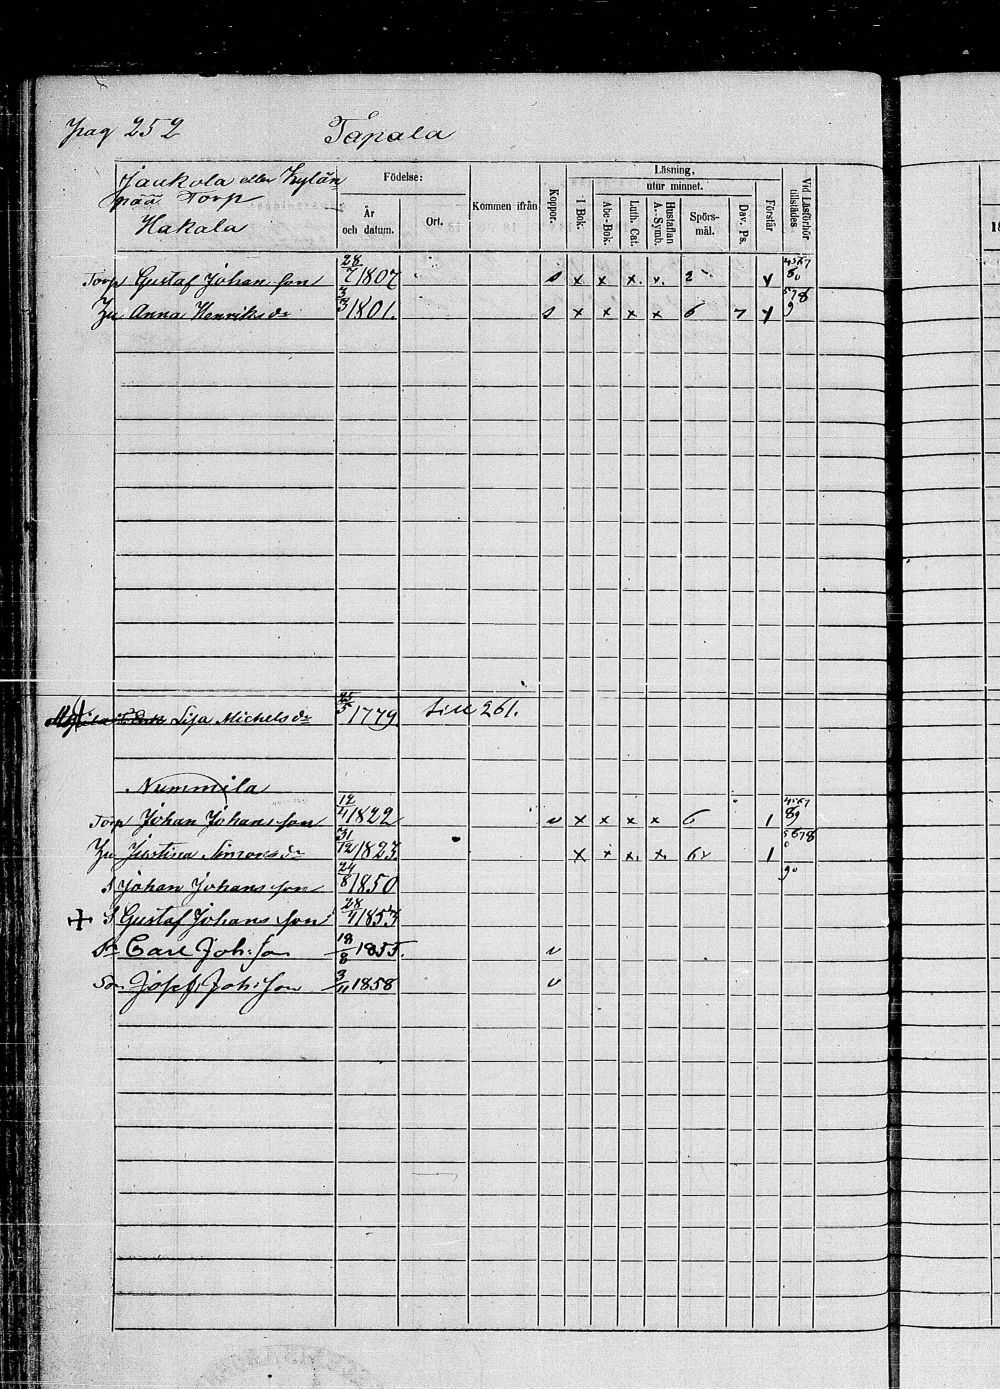 pag 252 Tåpala
Jaukola eller Kylän
pää Torp
Hakala
Födelse:
År
och datum.
Ort.
Kommen ifrån
Koppor.
Läsning,
utur minnet.
I Bok.
Abc-Bok.
Luth. Cat.
Hustaflan
A.-Symb.
Spörs-
mål.
Dav. Ps.
Förstår
Vid Läsförhör
tillstädes
18
Torp Gustaf Johan son 28/7 1807 s x x x. x. 2 y 4567 80
Hu Anna Henriks dr 3/3 1801. s x x x x 6 7 y 578 9
Lisa Michels dr 25/5 1779 Lill 261.
Nummila
Torp Johan Johans son 12/4 1822 v x x x x 6 1 4567 89
Hu Justina Simons dr 31/12 1823 x x x. x. 6 1 5678 90
S Johan Johans son 24/8 1850
S Gustaf Johans son 28/11 1853
Carl Joh: son 18/8 1855. v
Son Josef Joh: son 3/11 1858 v